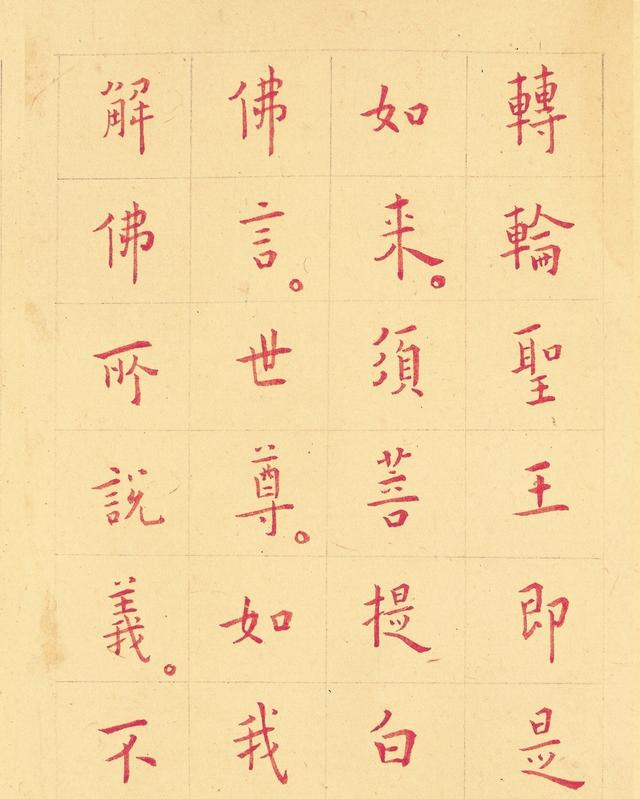 轉輪聖王即是
如来。須菩提白
佛言。世尊。如我
解佛所説義。不